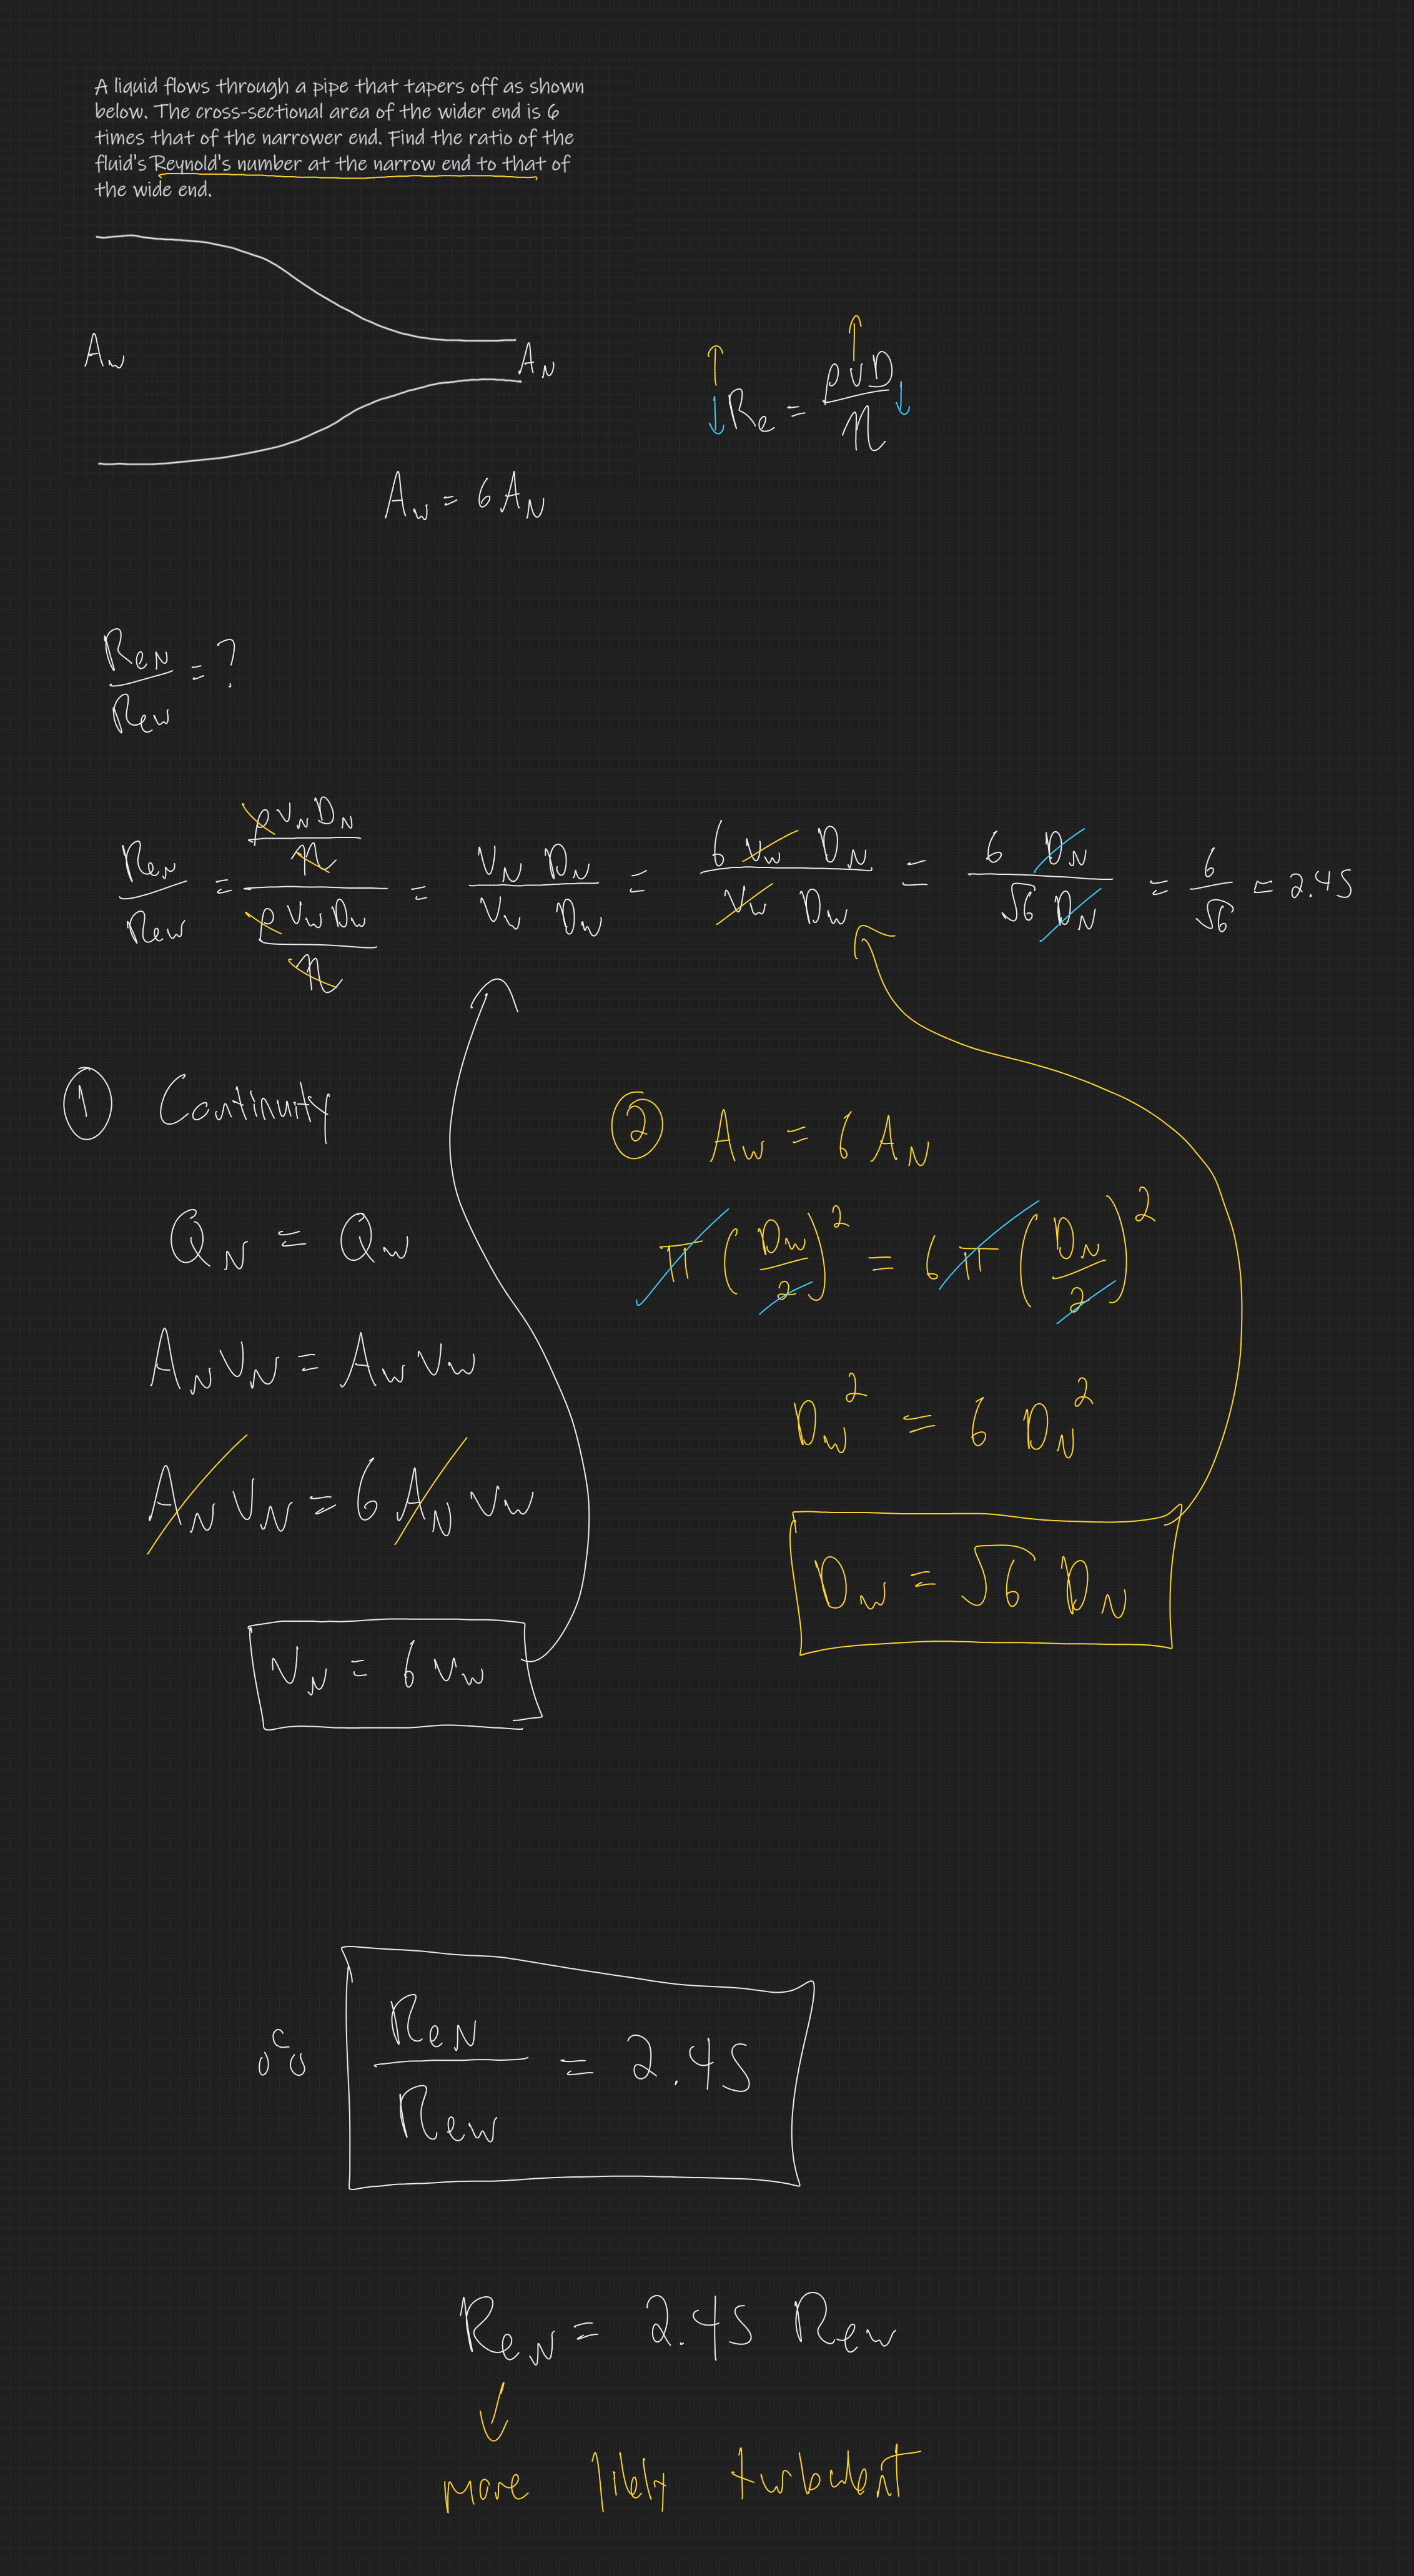 A liquid flows through a pipe that tapers off as shown
below. The cross-sectional area of the wider end is 6
times that of the narrower end. Find the ratio of the
fluid's Reynold's number at the narrow end to that of
the wide end.
A_W
A_N
↑↓ Re = ρv↑D↓/η
A_W = 6 A_N
Re_N/Re_W = ?
Re_N/Re_W = (ρ v_N D_N/η)/(ρ v_W D_W/η) = v_N D_N/v_W D_W = 6 v_W D_N/v_W D_W = 6 D_N/√6 D_N = 6/√6 = 2.45
① Continuity
Q_N = Q_W
A_N v_N = A_W v_W
A_N v_N = 6 A_N v_W
v_N = 6 v_W
② A_W = 6 A_N
π (D_W/2)² = 6 π (D_N/2)²
D_W² = 6 D_N²
D_W = √6 D_N
∴ Re_N/Re_W = 2.45
Re_N = 2.45 Re_W
↓
more likely turbulent